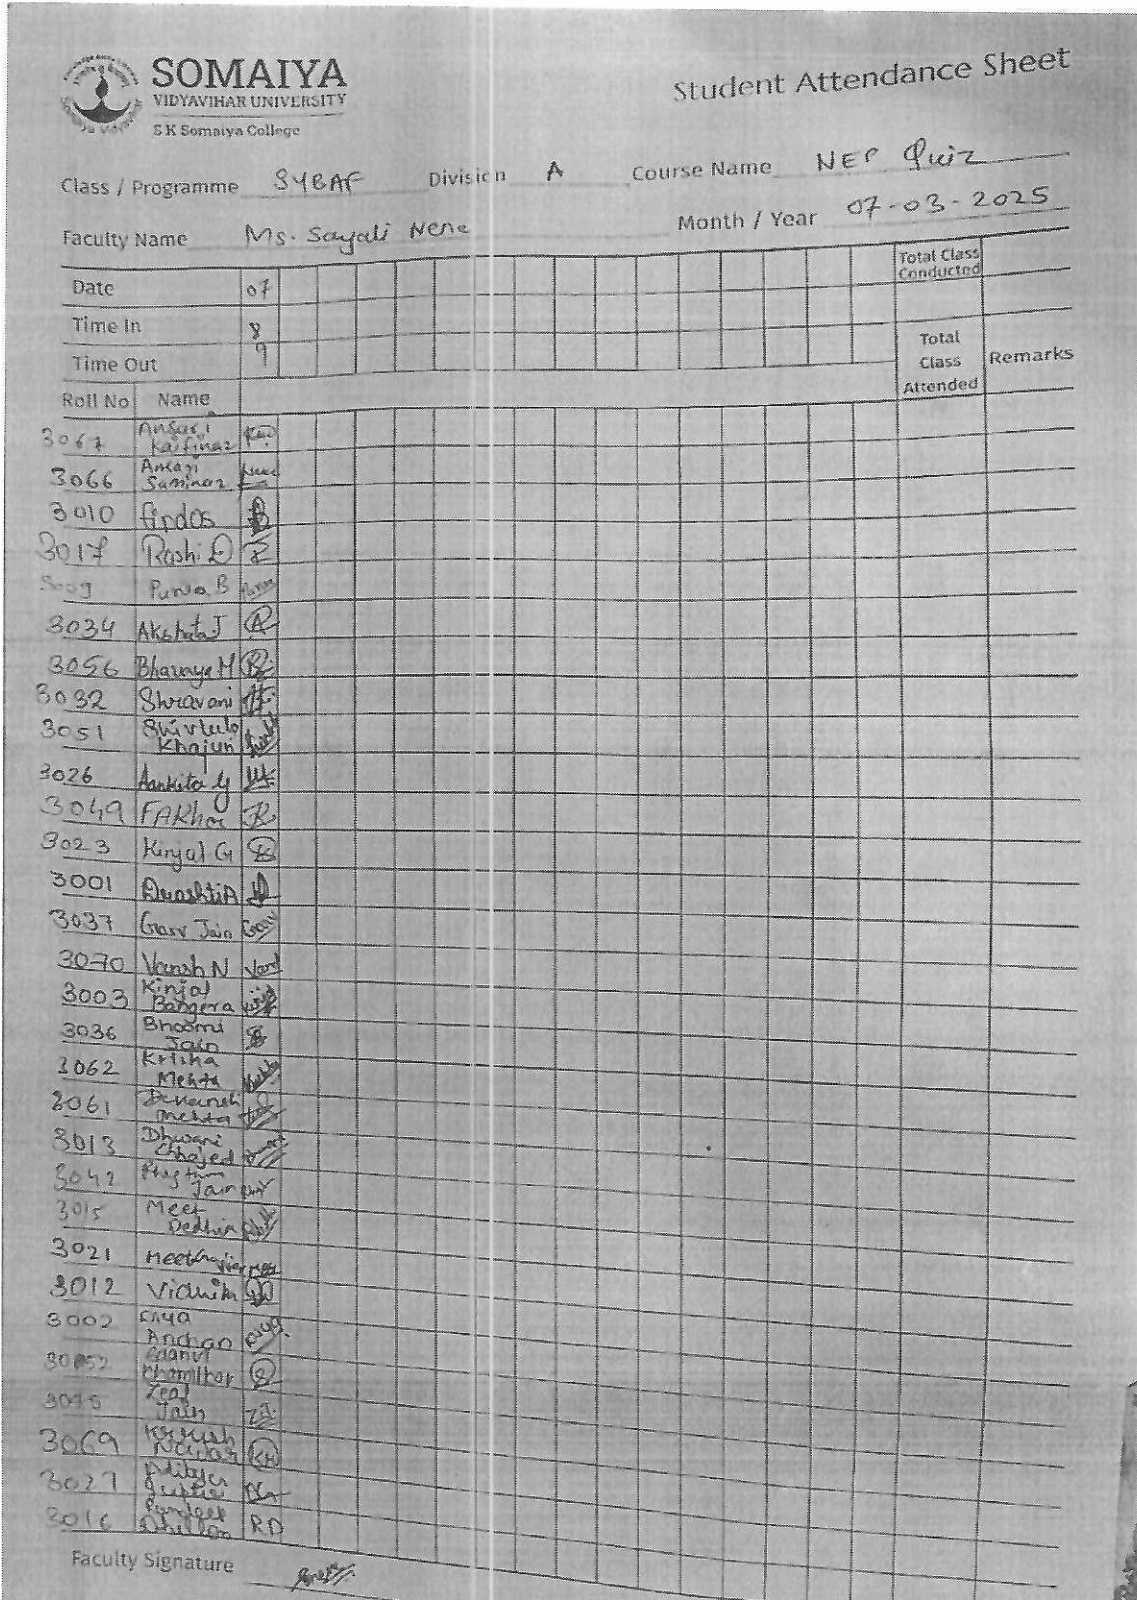 SOMAIYA
VIDYAVIHAR UNIVERSITY
S K Somaiya College
Student Attendance Sheet
Class / Programme SYBAF Division A Course Name NEP Quiz
Faculty Name Ms. Sayali Nene Month / Year 07-03-2025
Date 07 Total Class Conducted
Time In 8
Time Out 9
Total Class Attended Remarks
Roll No Name
3067 Ansari Kaifinaz
3066 Ansari Saminaz
3010 firdos
3017 Rashi D
3009 Purva B
3034 Akshata J
3056 Bhavya M
3032 Shravani
3051 Khajuri
3026 Aankita G
3049 FAKhar
3023 Kinjal G
3001 Drashti A
3037 Garv Jain Garv
3070 Vansh N Vansh
3003 Kinjal Bangera
3036 Bhoomi Jain
3062 Krisha Mehta
3061 Devansh Mehta
3013 Dhwani Chhajed
3042 Jain
3015 Meet Dedhia
3021 Meet
3012 Vidhita
3002 Anchan
3052
3045 Zeal Jain ZJ
3069 KN
3027 Aditya Gupta
3016 Dhillon RD
Faculty Signature